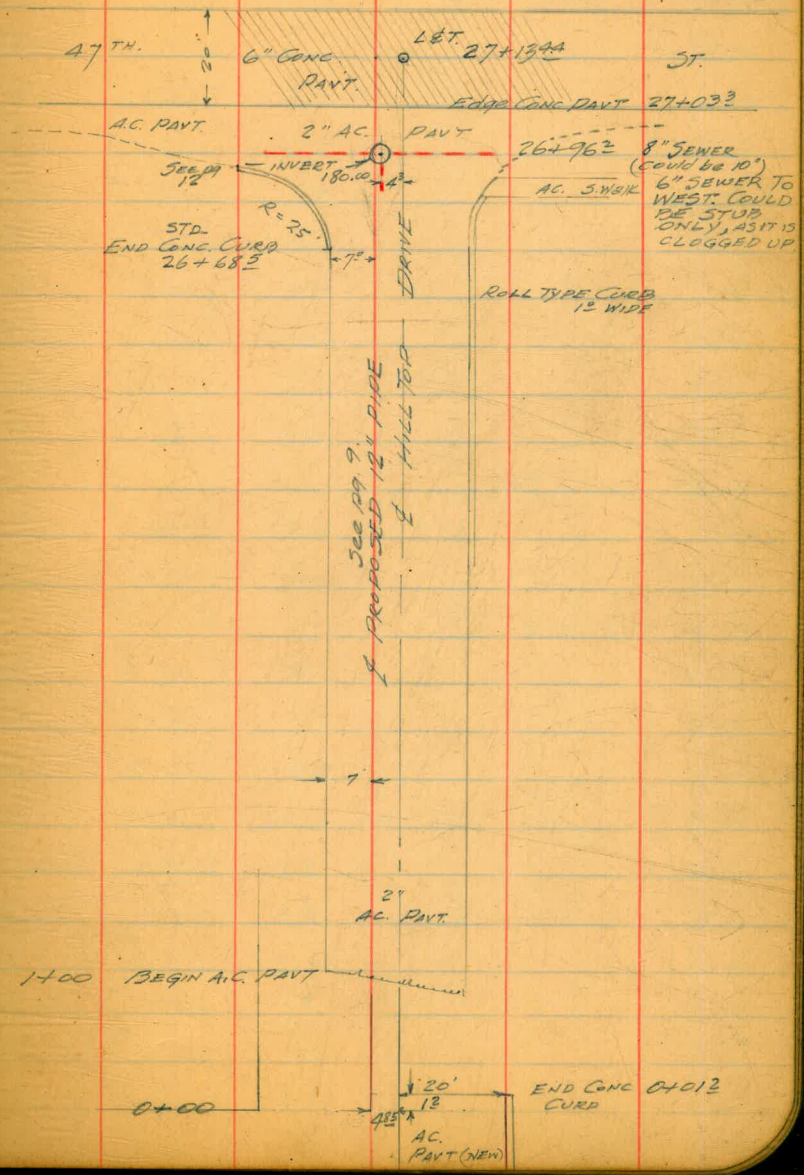 47 TH.
20'
6" CONC.
PAVT.
L&T. 27+13 44
ST.
Edge CONC PAVT 27+03 3
A.C. PAVT.
2" AC. PAVT
26+96 2
8" SEWER
(could be 10")
SEE pg
12
INVERT
180.00
4 3
AC. S.WALK
6" SEWER TO
WEST. COULD
BE STUB
ONLY, AS IT IS
CLOGGED UP
R=25'
STD.
END CONC. CURB
26+68 5
7 0
ROLL TYPE CURB
1 0 WIDE
℄ HILLTOP DRIVE
See pg. 9.
℄ PROPOSED 12" PIPE
7
2"
AC. PAVT.
1+00 BEGIN A.C. PAVT
20'
END CONC 0+01 2
CURB
1 2
0+00
4 85
AC.
PAVT (NEW)